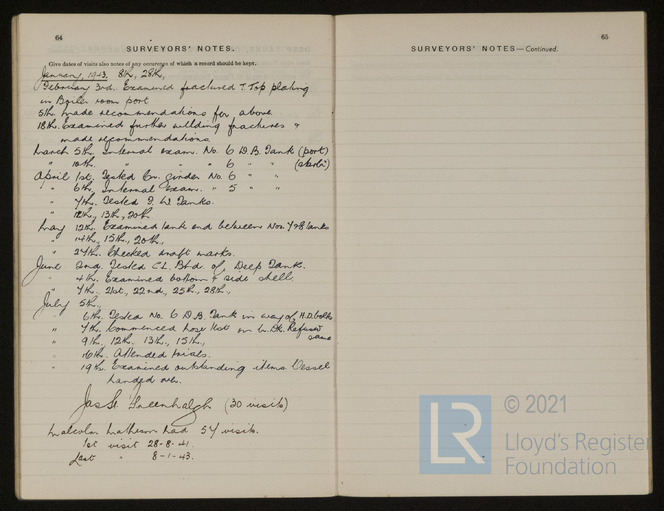 64
SURVEYORS' NOTES.
Give dates of visits also notes of any occurence of which a record should be kept.
January, 1943. 8th, 28th,
February 3rd. Examined fractured T. Top plating
in Boiler room port
5th. made recommendations for above.
18th. Examined further welding fractures &
made recommendations
March 5th. Internal exam. No. 6 D.B. Tank (port)
" 10th. " " " 6 " " (starb'd)
April 1st. Tested Cr. girder No. 6 " "
" 6th, Internal Exam. " 5 " "
" 7th. Tested F. W Tanks.
" 12th, 13th, 20th
May 12th. Examined tank end between Nos. 7 & 8 tanks
" 14th, 15th, 20th,
" 24th. Checked draft marks.
June 2nd Tested C.L. Bhd. of Deep Tank.
" 4th. Examined bottom & side shell.
" 7th. 21st, 22nd, 25th, 28th,
July 5th.,
" 6th. Tested No. 6 D.B. Tank in way of H.D. bolts
" 7th. Commenced hose test on U. Dk. Refused
same
" 9th, 12th, 13th, 15th,
" 16th. Attended trials.
" 19th. Examined outstanding items. Vessel
handed over.
Jas. Greenhalgh (30 visits)
Malcolm Matheson had 54 visits.
1st visit 28-8-41.
Last " 8-1-43.
65
SURVEYORS' NOTES—Continued.
LR
© 2021
Lloyd's Register
Foundation